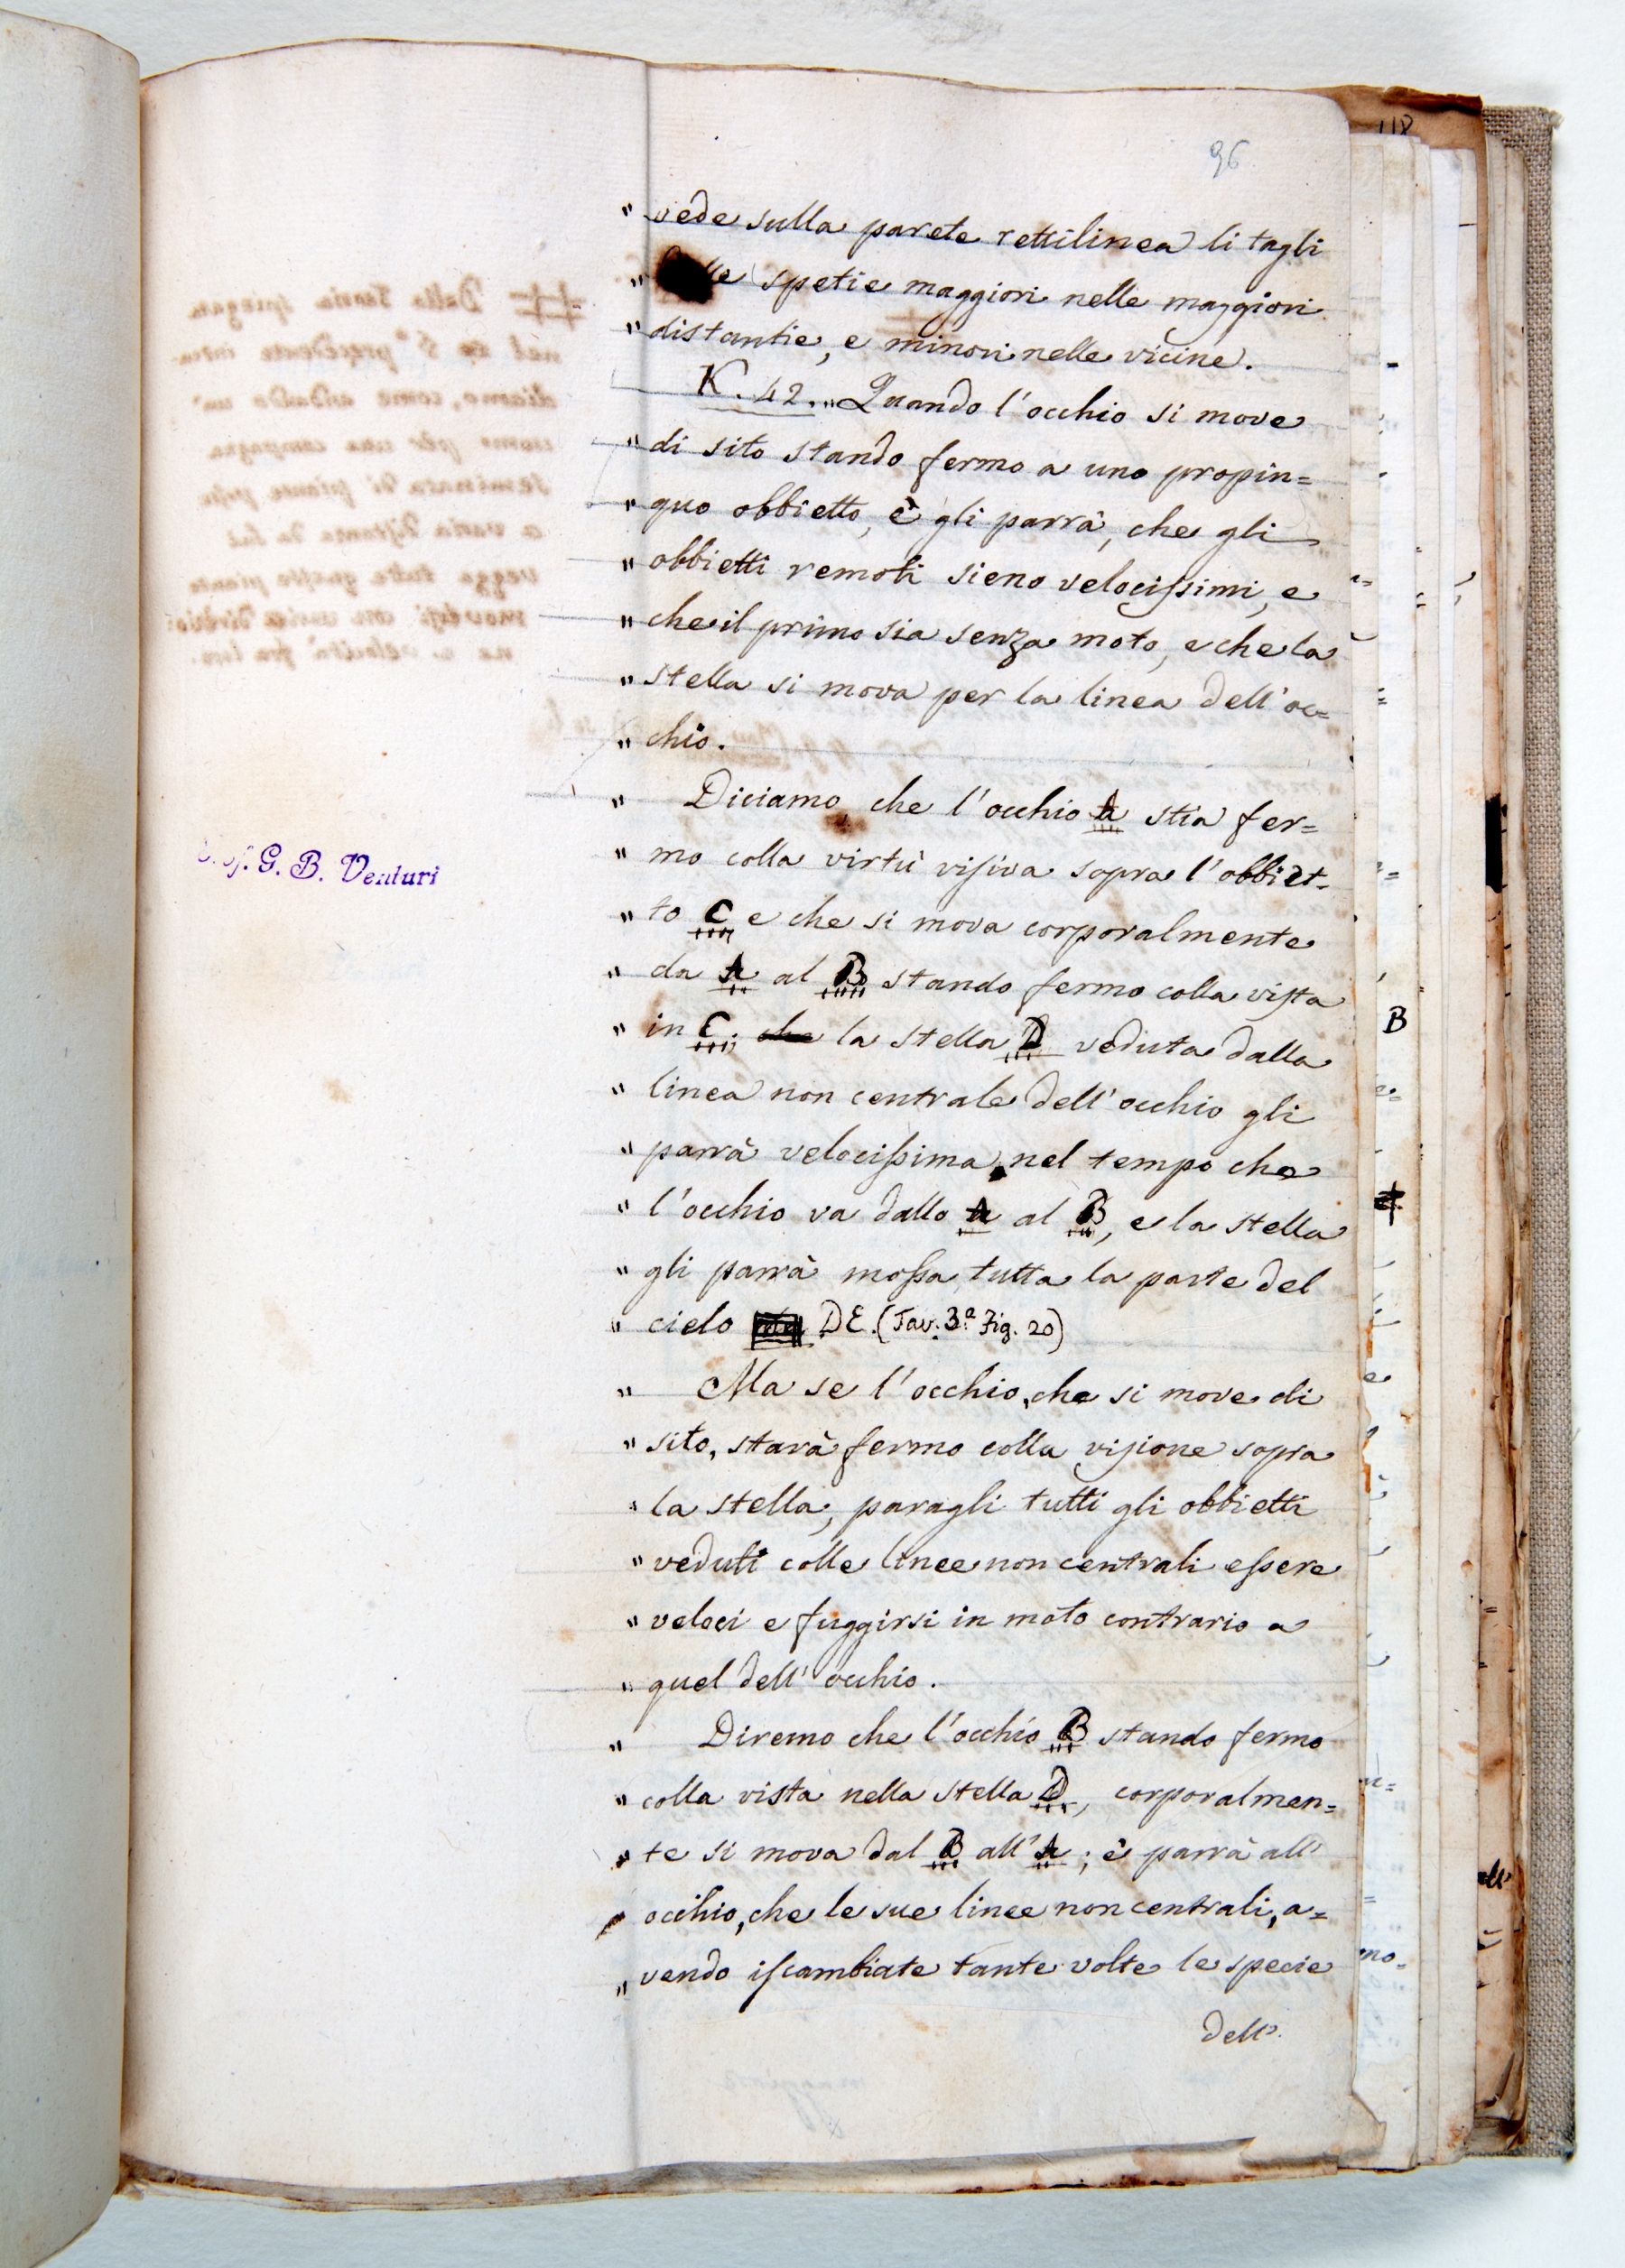 96
118
" vede sulla parete rettilinea li tagli
" spetie maggiori nelle maggiori
" distantie, e minori nelle vicine.
K. 42. „ Quando l'occhio si move
" di sito stando fermo a uno propin=
" quo obbietto, è gli parrà, che gli
" obbietti remoti sieno velocissimi, e
" che il primo sia senza moto, e che la
" stella si mova per la linea dell'oc=
" chio.
" Diciamo, che l'occhio A stia fer=
" mo colla virtù visiva sopra l'obbiet=
" to C e che si mova corporalmente
" da A al B stando fermo colla vista
" in C; che la stella D veduta dalla
" linea non centrale dell'occhio gli
" parrà velocissima nel tempo che
" l'occhio va dallo A al B, e la stella
" gli parrà mossa tutta la parte del
" cielo DE. (Tav. 3.ª Fig. 20)
" Ma se l'occhio, che si move di
" sito, starà fermo colla visione sopra
" la stella, paragli tutti gli obbietti
" veduti colle linee non centrali essere
" veloci e fuggirsi in moto contrario a
" quel dell'occhio.
" Diremo che l'occhio B stando fermo
" colla vista nella stella D, corporalmen=
" te si mova dal B all'A; è parrà all'
" occhio, che le sue linee non centrali, a=
" vendo iscambiate tante volte le specie
dell'
G. B. Venturi
B